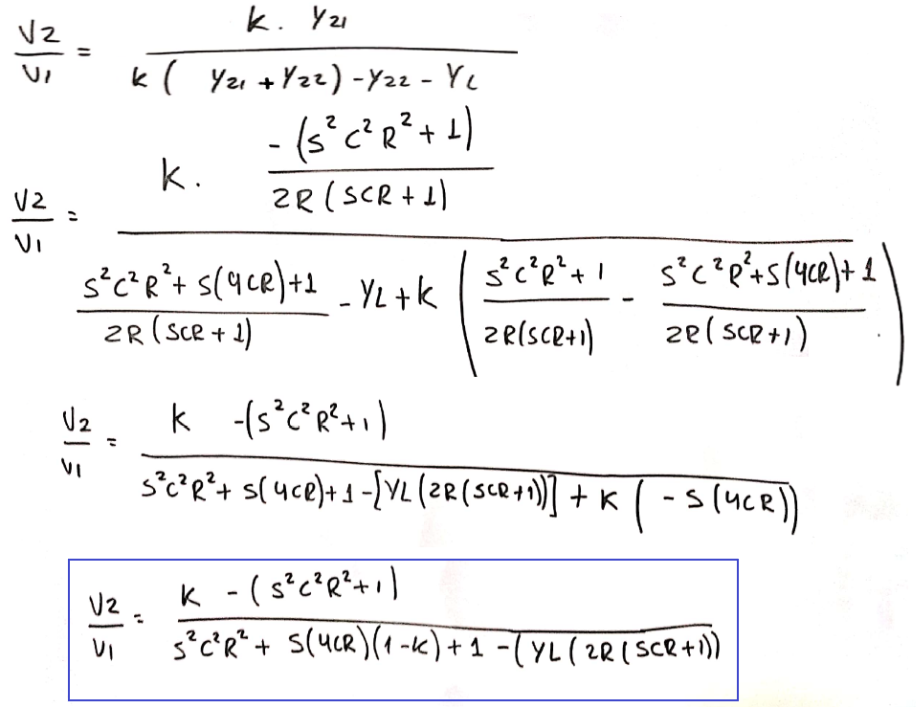 V2/V1 = k. Y21 / k( Y21 + Y22) - Y22 - YL
V2/V1 = k. -(s²c²R²+1)/2R(SCR+1) / s²c²R²+s(4CR)+1/2R(SCR+1) - YL+k ( s²c²R²+1/2R(SCR+1) - s²c²R²+s(4CR)+1/2R(SCR+1) )
V2/V1 = k -(s²c²R²+1) / s²c²R²+ s(4CR)+1-[YL(2R(SCR+1))] + k ( - s(4CR))
V2/V1 = k -(s²c²R²+1) / s²c²R²+ s(4CR)(1-k)+1 -(YL(2R(SCR+1))